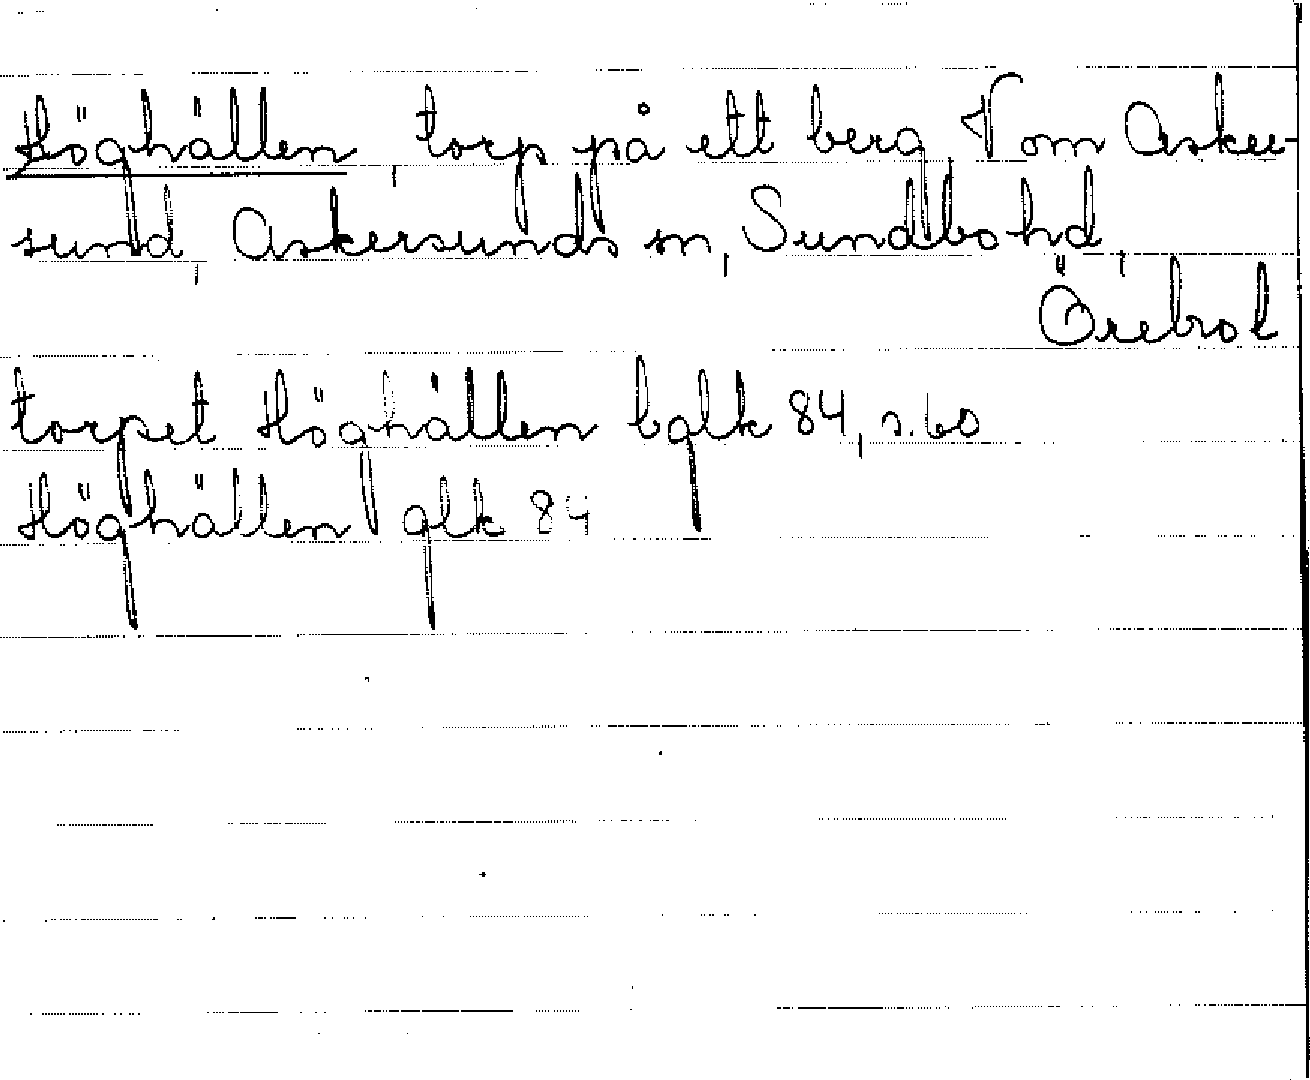 Höghällen, torp på ett berg V om Asker-
sund, Askersunds sn, Sundbo hd,
Örebro l
torpet Höghällen bglk 84, s. 60
Höghällen glk 84